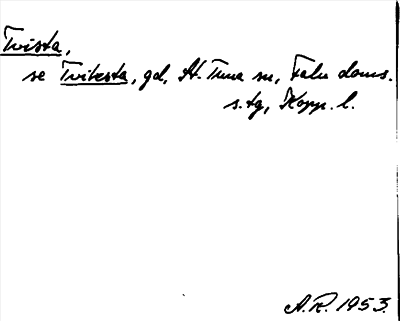 Tvista,
se Tvitesta, gd, St. Tuna sn, Falu doms.
s.tg, Kopp. l.
A.R. 1953.